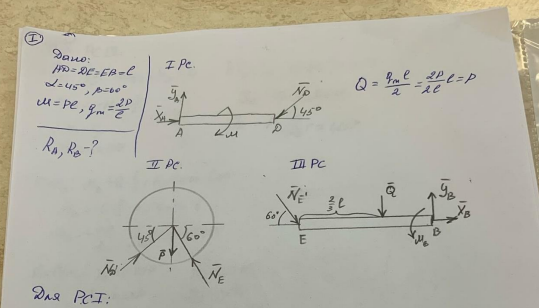 I
Дано:
AD=DE=EB=l
α=45°, β=60°
M=Pl, qm=2P/l
R_A, R_B -?
I РС.
Y̅_A
X̅_A
A
M
D
N̅_D
45°
Q = qm l/2 = 2P/2l l = P
II РС.
45°
60°
P̅
N̅_D'
N̅_E
III РС
N̅_E'
60°
2/3 l
Q̅
Y̅_B
X̅_B
M_B
E
B
Для РС I: